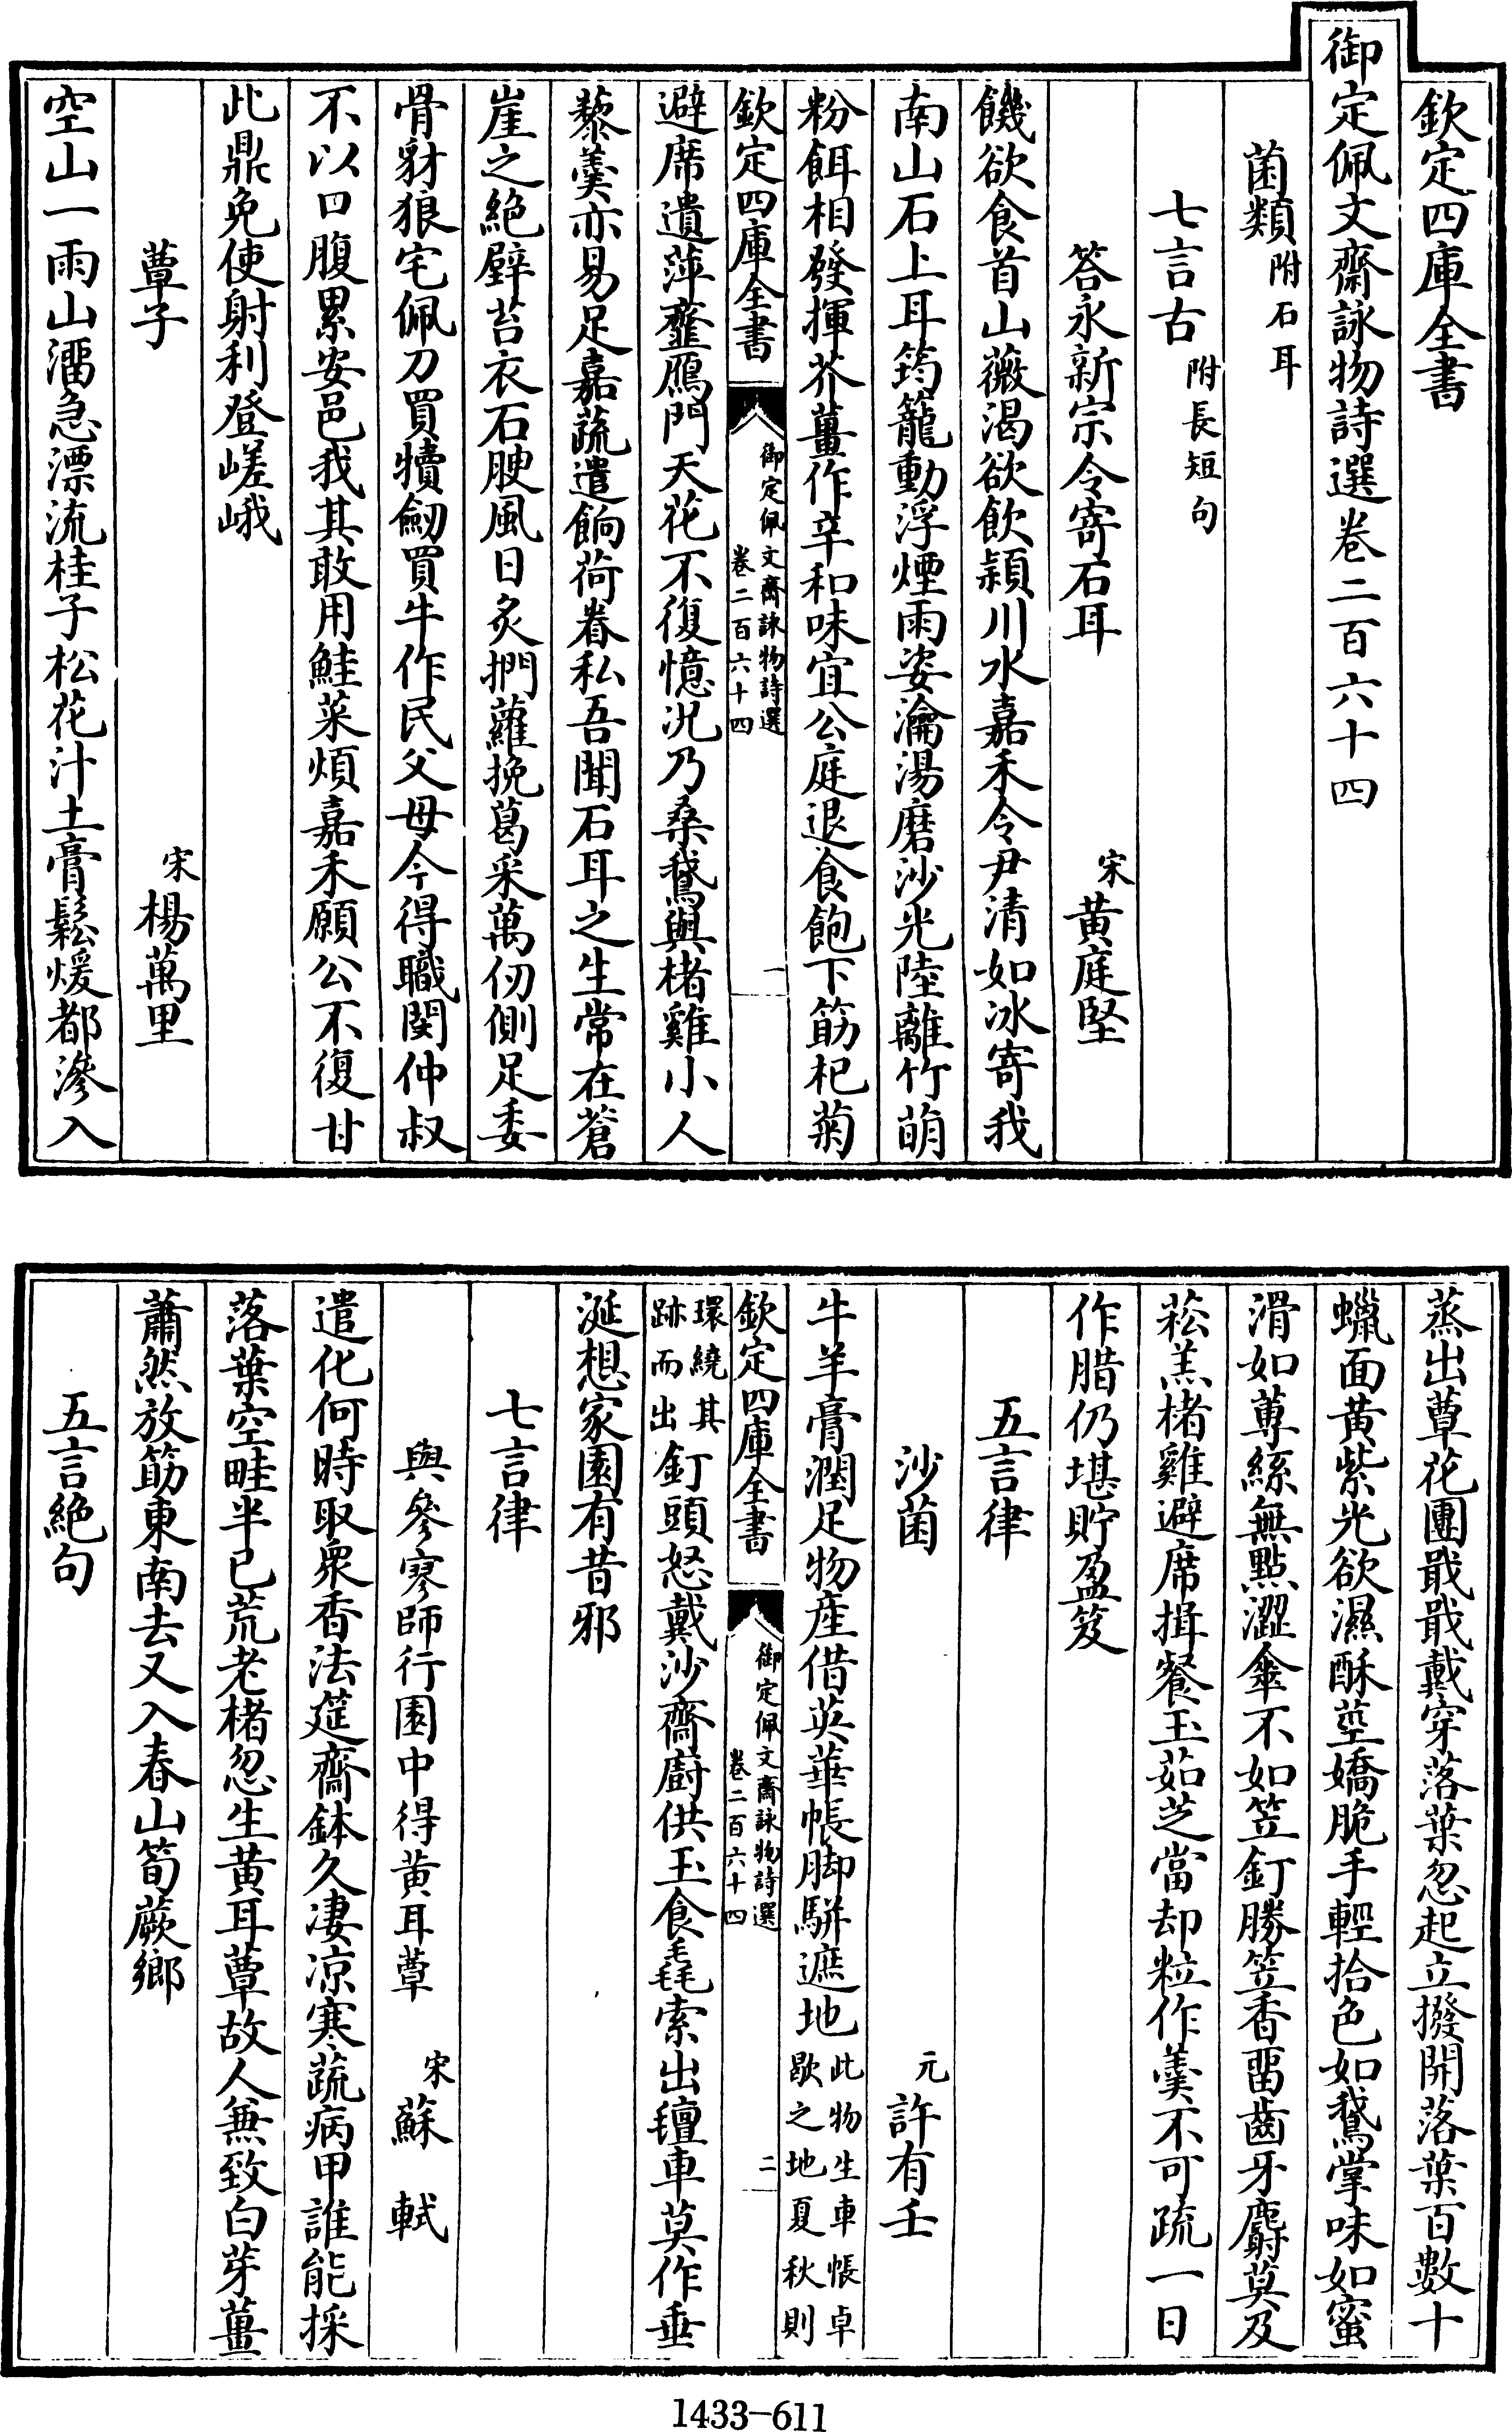 欽定四庫全書
御定佩文齋詠物詩選卷二百六十四
菌類附石耳
七言古附長短句
答永新宗令寄石耳 宋黃庭堅
饑欲食首山薇渴欲飲潁川水嘉禾令尹清如冰寄我
南山石上耳筠籠動浮煙雨姿瀹湯磨沙光陸離竹萌
粉餌相發揮芥薑作辛和味宜公庭退食飽下筯杞菊
欽定四庫全書 御定佩文齋詠物詩選卷二百六十四 一
避席遺萍虀鴈門天花不復憶況乃桑鵞與楮雞小人
藜羹亦易足嘉蔬遣餉荷眷私吾聞石耳之生常在蒼
崖之絶壁苔衣石腴風日炙捫蘿挽葛采萬仞側足委
骨豺狼宅佩刀買犢劒買牛作民父母今得職閔仲叔
不以口腹累安邑我其敢用鮭菜煩嘉禾願公不復甘
此鼎免使射利登嵯峨
蕈子 宋楊萬里
空山一雨山溜急漂流桂子松花汁土膏鬆煖都滲入
蒸出蕈花團戢戢戴穿落葉忽起立撥開落葉百數十
蠟面黃紫光欲濕酥莖嬌脆手輕拾色如鵞掌味如蜜
滑如蓴絲無點澀傘不如笠釘勝笠香留齒牙麝莫及
菘羔楮雞避席揖餐玉茹芝當却粒作羹不可疏一日
作腊仍堪貯盈笈
五言律
沙菌 元許有壬
牛羊膏潤足物産借英華帳脚駢遮地此物生車帳卓歇之地夏秋則
欽定四庫全書 御定佩文齋詠物詩選卷二百六十四 二
環繞其跡而出釘頭怒戴沙齋廚供玉食毳索出氊車莫作垂
涎想家園有昔邪
七言律
與參寥師行園中得黃耳蕈 宋蘇軾
遣化何時取衆香法筵齋鉢久凄凉寒蔬病甲誰能採
落葉空畦半已荒老楮忽生黃耳蕈故人兼致白芽薑
蕭然放筯東南去又入春山筍蕨鄉
五言絶句
1433-611